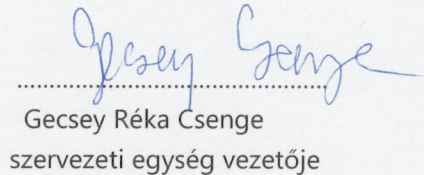 Gecsey Csenge
Gecsey Réka Csenge
szervezeti egység vezetője